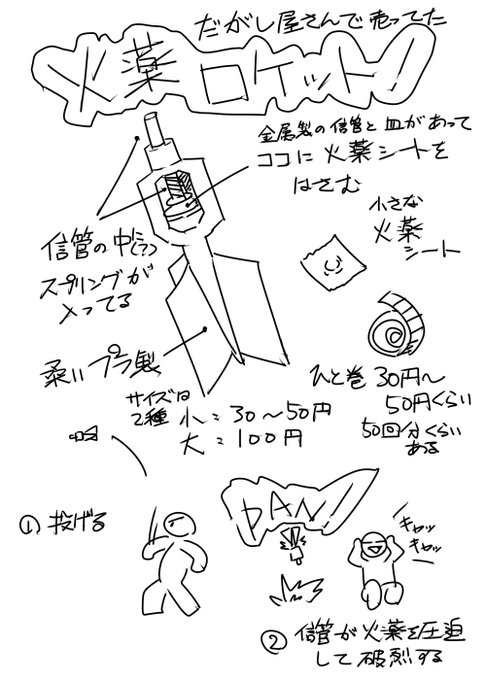 だがし屋さんで売ってた
火薬ロケット!
金属製の信管と皿があって
ココに火薬シートを
はさむ
信管の中には
スプリングが
入ってる
小さな
火薬
シート
柔いプラ製
ひと巻 30円〜
50円くらい
50回分くらい
ある
サイズは
2種
小:30〜50円
大:100円
①投げる
PAN!
キャッ
キャッ
②信管が火薬を圧迫
して破烈する